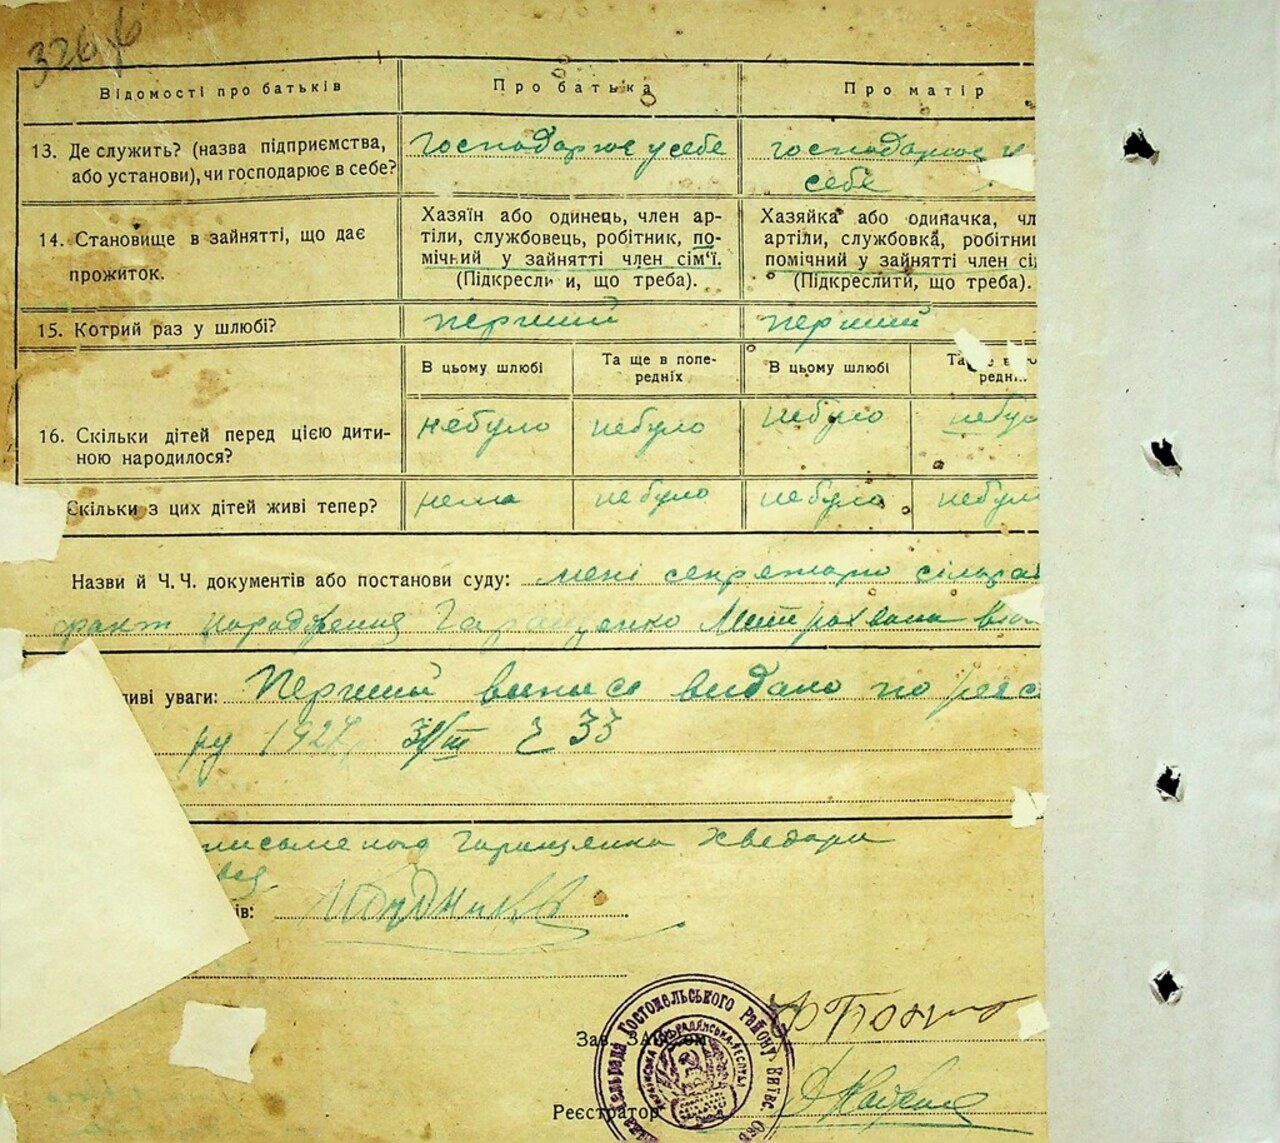 326
Відомості про батьків
Про батька
Про матір
13. Де служить? (назва підприємства,
або установи), чи господарює в себе?
господарює у себе
господарює у
себе
14. Становище в зайнятті, що дає
прожиток.
Хазяїн або одинець, член ар-
тіли, службовець, робітник, по-
мічний у зайнятті член сім'ї.
(Підкресли и, що треба).
Хазяйка або одиначка, чл
артіли, службовка, робітниц
помічний у зайнятті член сі
(Підкреслити, що треба).
15. Котрий раз у шлюбі?
перший
перший
В цьому шлюбі
Та ще в попе-
редніх
В цьому шлюбі
Та ще в
редніх
16. Скільки дітей перед цією дити-
ною народилося?
небуло
небуло
небуло
небуло
Скільки з цих дітей живі тепер?
нема
небуло
небуло
небул
Назви й Ч.Ч. документів або постанови суду: мені секретарю сільрад
факт народження Гаращенко Митрохвана
ливі уваги: Перший выпись видано по реєс
ру 1927 31/III Ч 33
Гаращенка Хведора
ів:
Гостомельського району Київс
Зав. ЗАГСом
Реєстратор